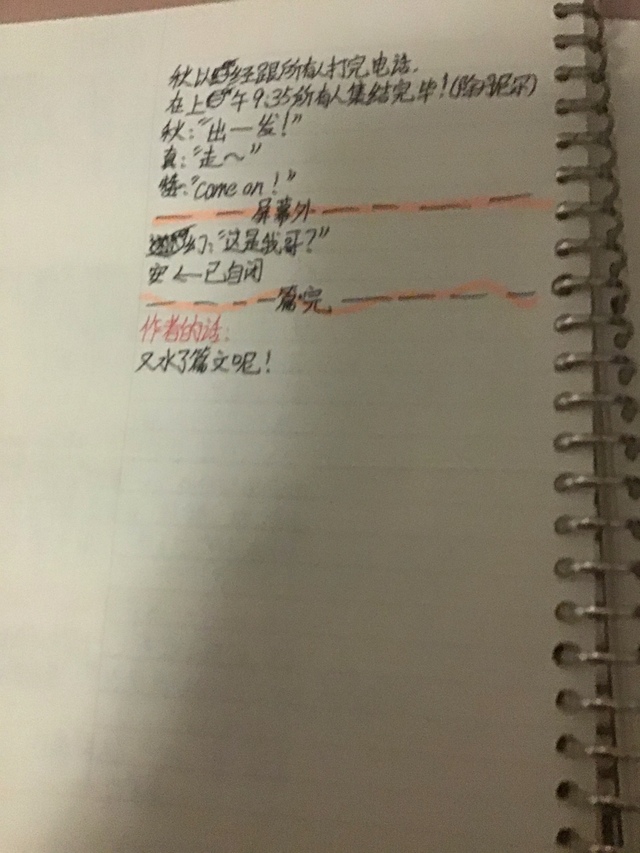 秋以经跟所有人打完电话.
在上午9:35所有人集结完毕!(除丹尼尔)
秋:"出一发!"
真:"走~"
:"come on!"
— — — 屏幕外 — — — — —
幻:"这是我哥?"
安 ←已自闭
— — — — 篇·完 — — — — —
作者的话:
又水了篇文呢!